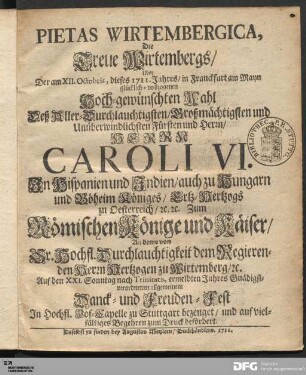 PIETAS WIRTEMBERGICA,
Die
Treue Wirtembergs/
Uber
Der am XII. Octobris, dieses 1711. Jahrs/ in Franckfurt am Mayn
glücklich-vollzogenen
Hoch-gewünschten Wahl
Deß Aller-Durchlauchtigsten/ Großmächtigsten und
Unüberwindlichsten Fürsten und Herrn/
HERRN
CAROLI VI.
In Hispanien und Indien/ auch zu Hungarn
und Böheim Königes/ Ertz-Hertzogs
zu Oesterreich/ ꝛc. ꝛc. Zum
Römischen Könige und Käiser/
An dem von
Sr. Hochfl. Durchlauchtigkeit dem Regieren-
den Herrn Hertzogen zu Wirtemberg/ ꝛc.
Auf den XXI. Sonntag nach Trinitatis, ermeldten Jahrs Gnädigst-
verordneten allgemeinen
Danck- und Freuden-Fest
In Hochfl. Hof-Capelle zu Stuttgart bezeuget/ und auf viel-
fältiges Begehren zum Druck befördert.
Daselbst zu finden bey Augustus Metzlern/ Buchhändlern. 1711.
DFG